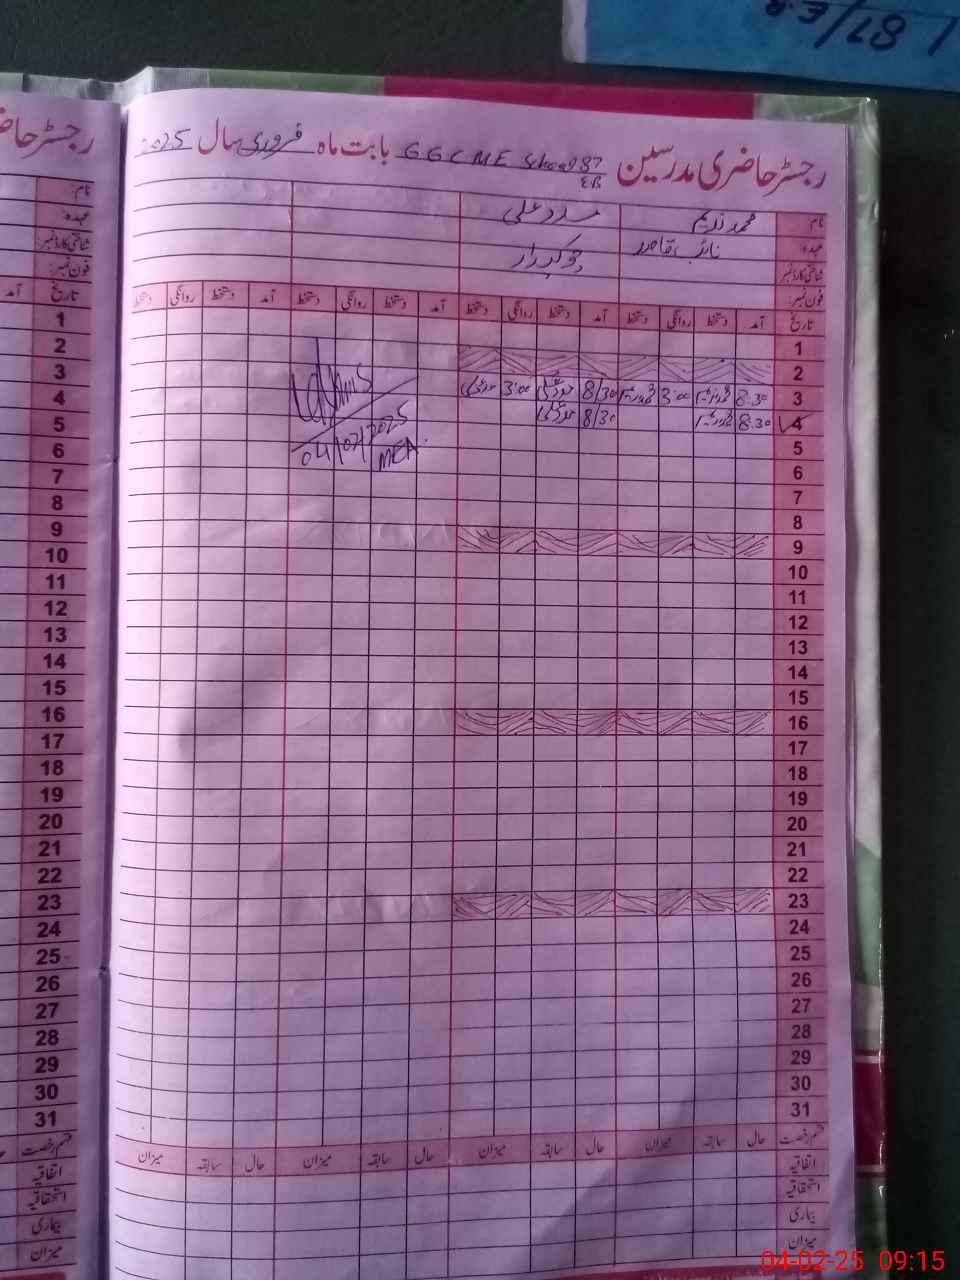 87/E.B
رجسٹر حاضری مدرسین GGCME School 87 EB بابت ماہ فروری سال 2025
نام: محمد ندیم مدد علی
عہدہ: نائب قاصد چوکیدار
شناختی کارڈ نمبر:
فون نمبر:
تاریخ آمد دستخط روانگی دستخط آمد دستخط روانگی دستخط آمد دستخط روانگی دستخط آمد دستخط روانگی دستخط
1
2
3 8.30 3:00 8/30 3:00
4 8.30 8/30
5
04/02/2025
MEA
6
7
8
9
10
11
12
13
14
15
16
17
18
19
20
21
22
23
24
25
26
27
28
29
30
31
قسم رخصت حال سابقہ میزان حال سابقہ میزان حال سابقہ میزان حال سابقہ میزان
اتفاقیہ
استحقاقیہ
بیماری
میزان
رجسٹر حاض
نام:
عہدہ:
شناختی کارڈ نمبر:
فون نمبر:
تاریخ آمد
1
2
3
4
5
6
7
8
9
10
11
12
13
14
15
16
17
18
19
20
21
22
23
24
25
26
27
28
29
30
31
قسم رخصت
اتفاقیہ
استحقاقیہ
بیماری
میزان
04-02-25 09:15